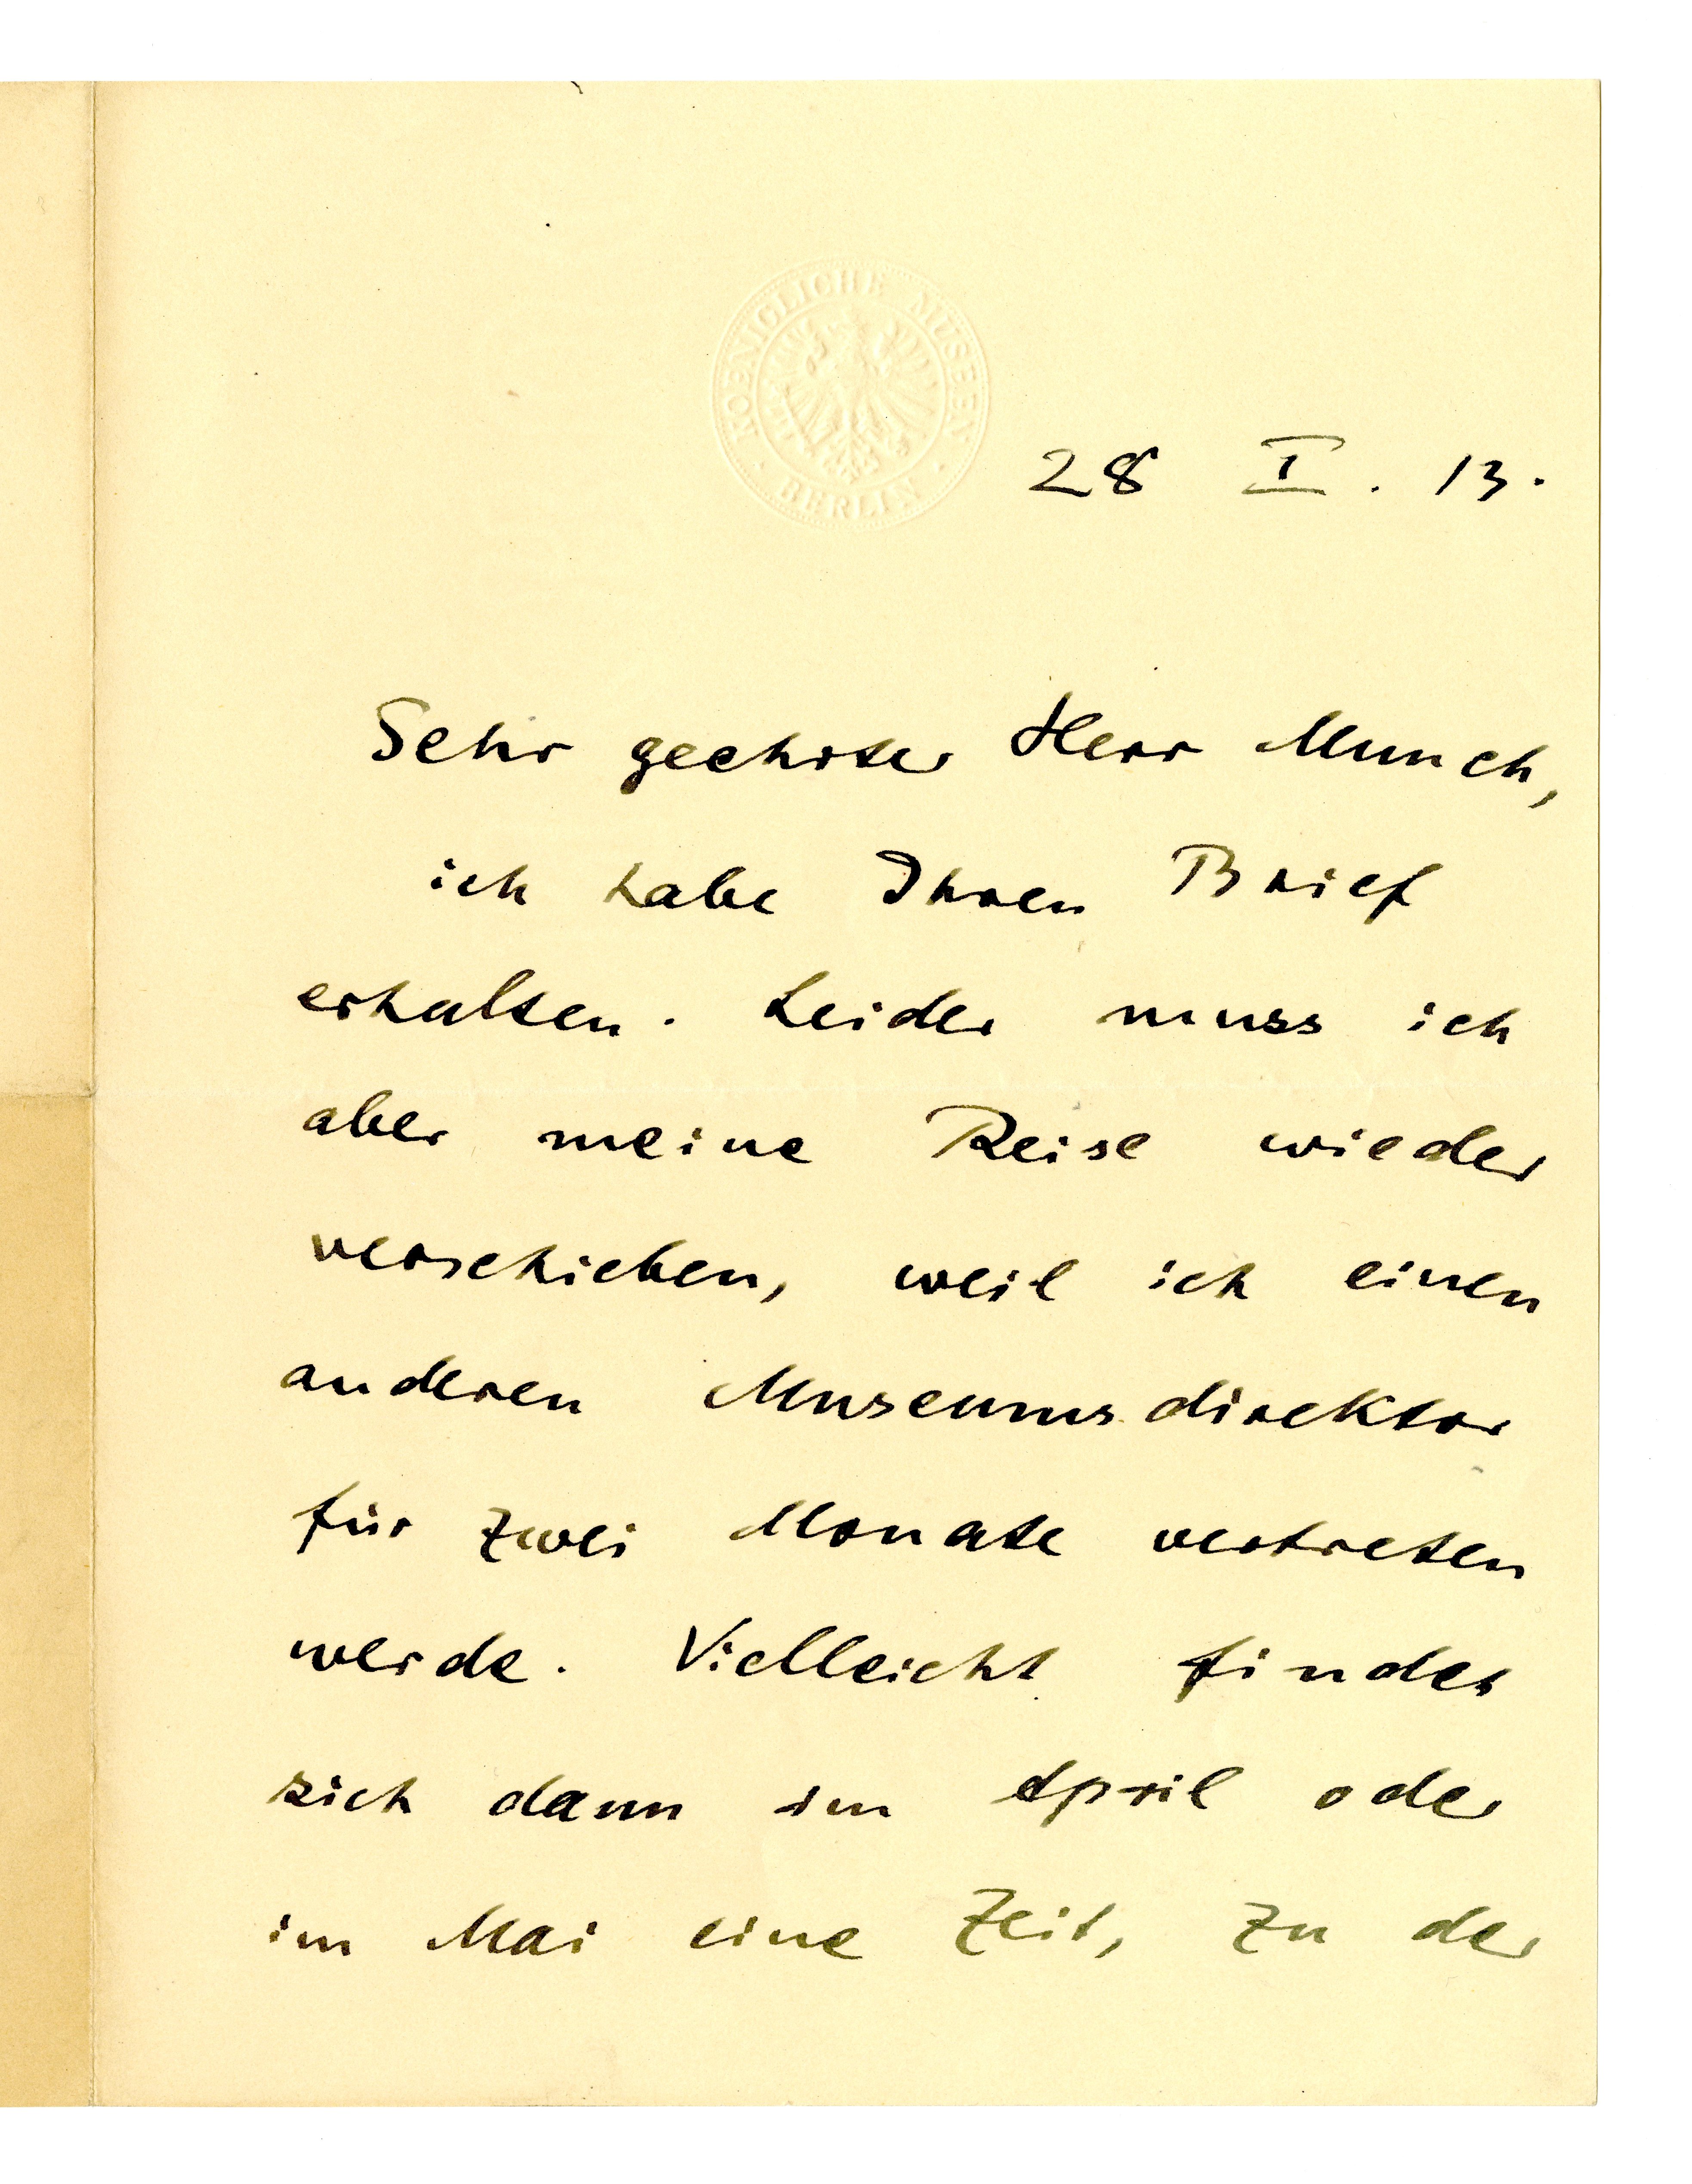 KOENIGLICHE MUSEEN
BERLIN
28 I. 13.
Sehr geehrter Herr Munch,
ich habe Ihren Brief
erhalten. Leider muss ich
aber meine Reise wieder
verschieben, weil ich einen
anderen Museumsdirektor
für zwei Monate vertreten
werde. Vielleicht findet
sich dann im April oder
im Mai eine Zeit, zu der